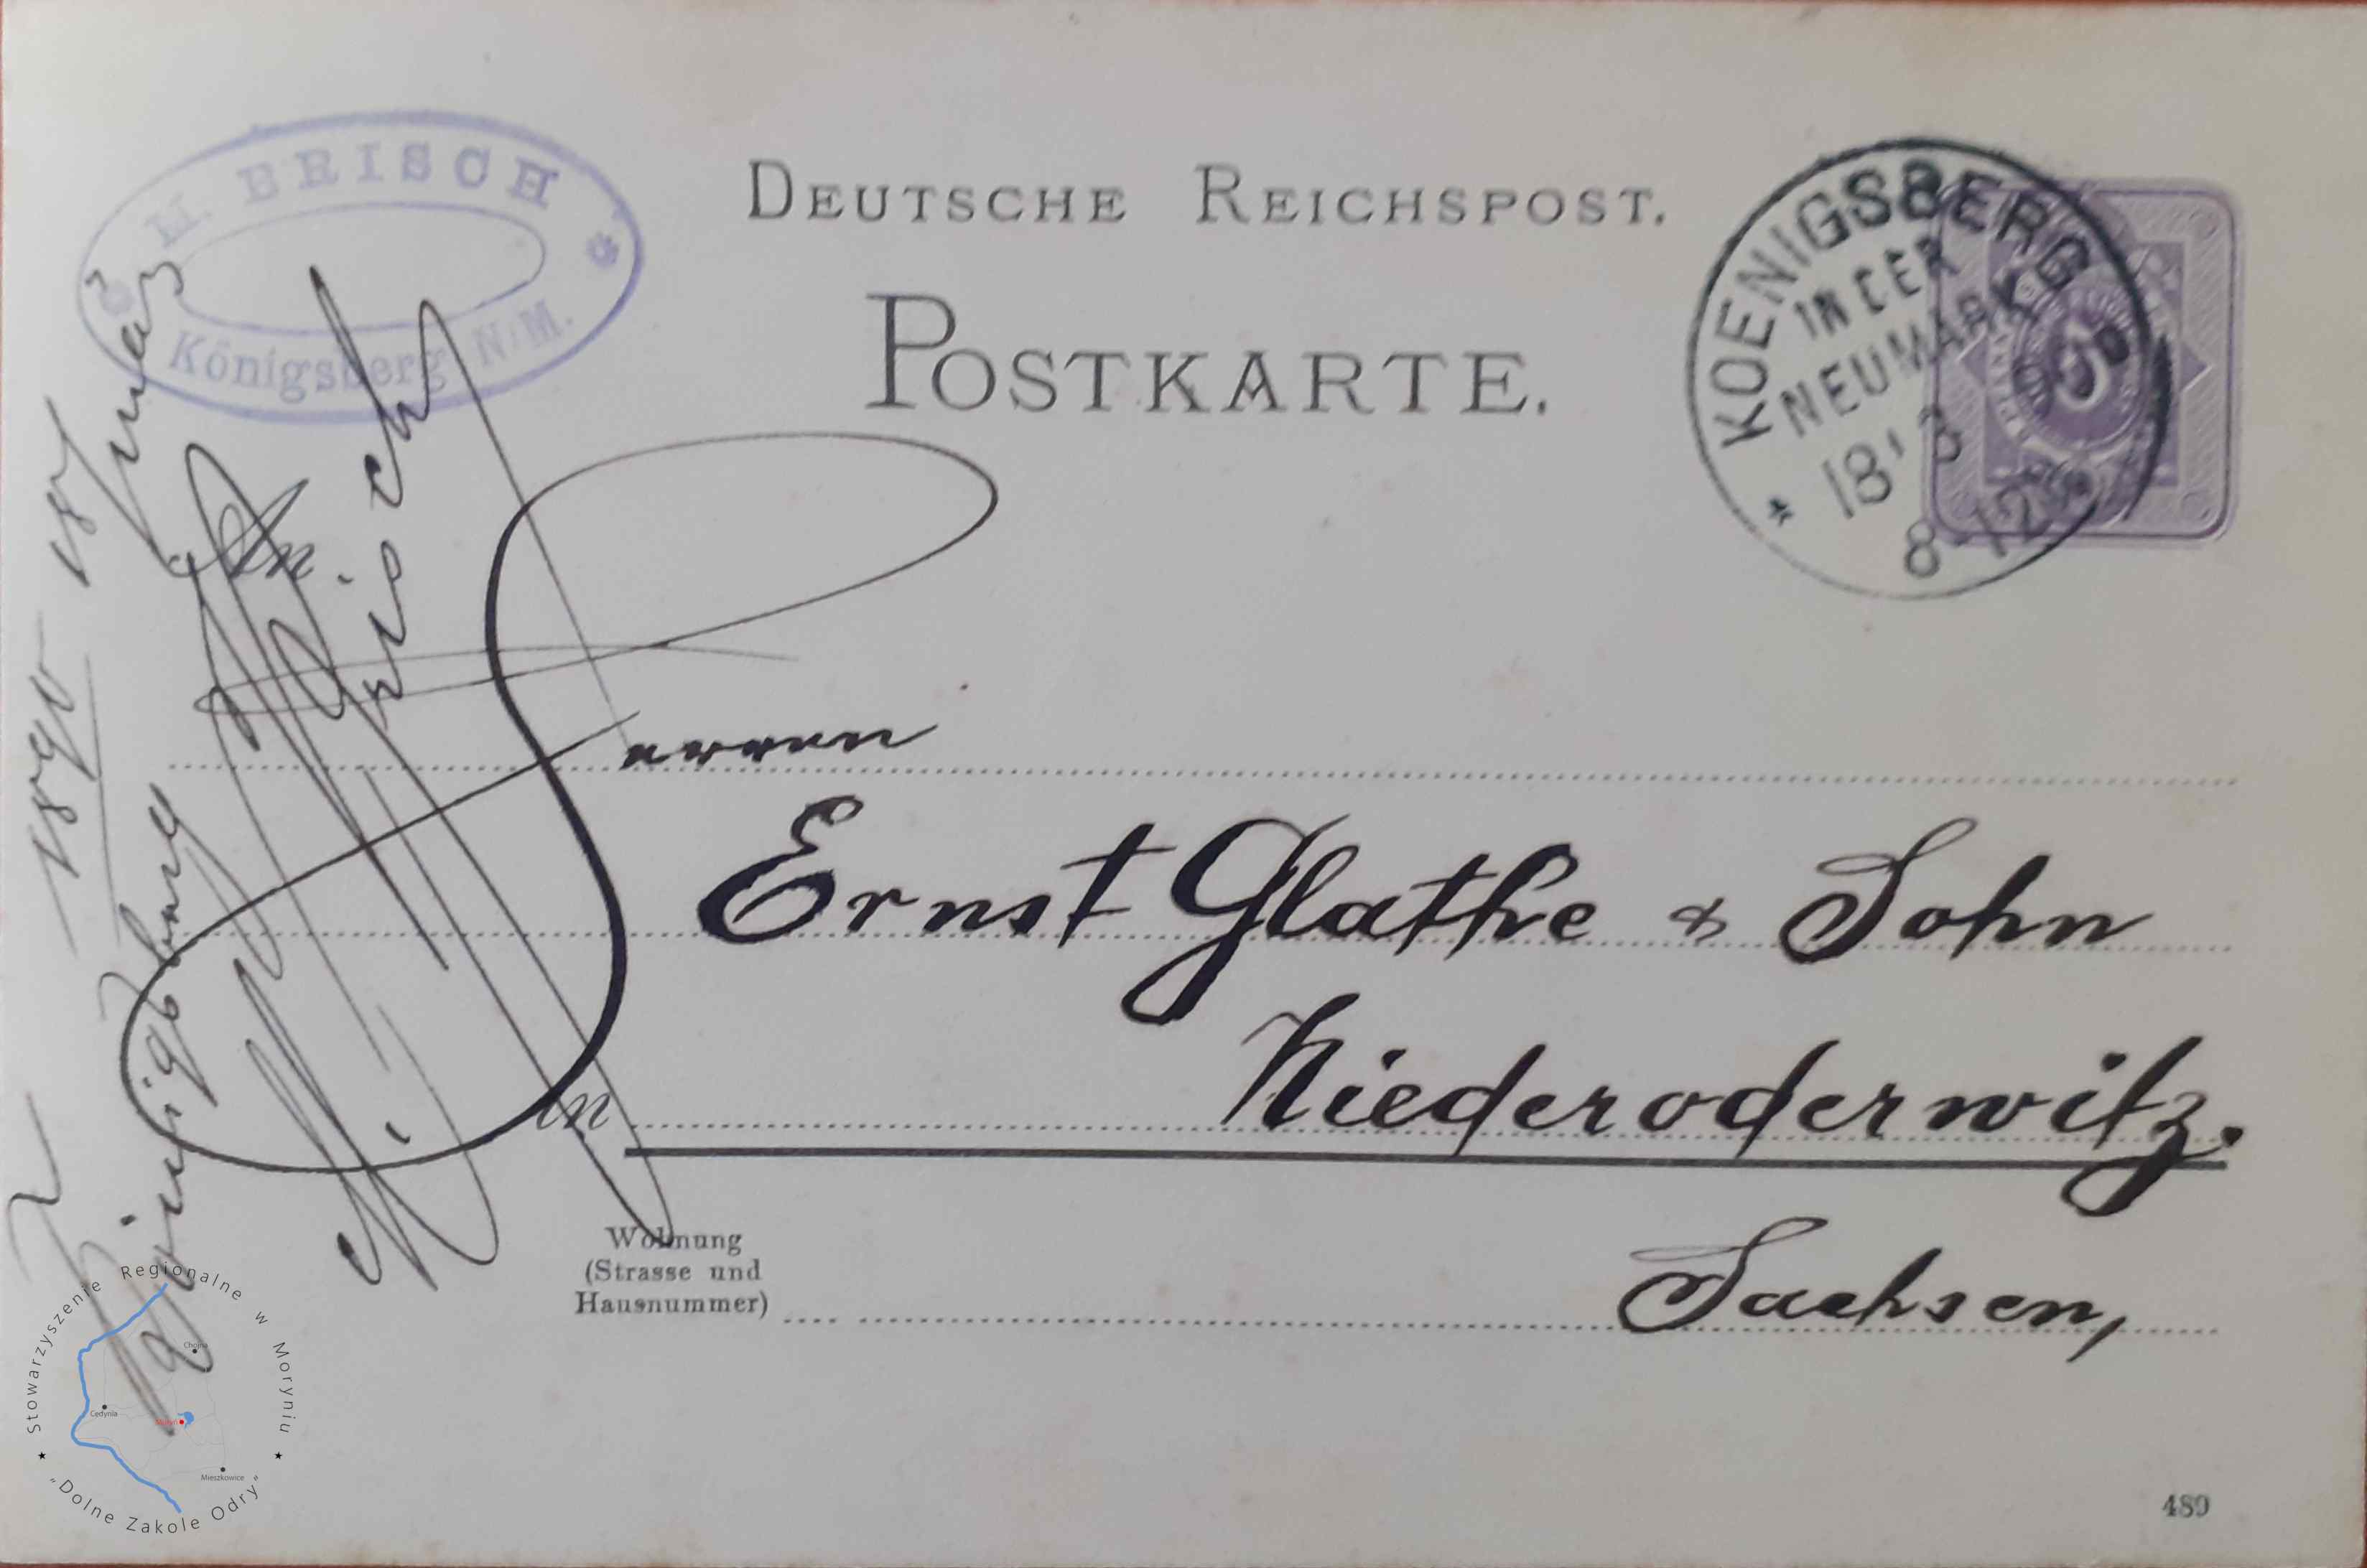 M. BRISCH
Königsberg N/M.
DEUTSCHE REICHSPOST.
POSTKARTE.
KOENIGSBERG
IN DER
NEUMARK
18 3
8-12
5
An
Herren
Ernst Glathe & Sohn
in Niederoderwitz.
Wohnung
(Strasse und
Hausnummer)
Sachsen,
489
1890 18/
Stowarzyszenie Regionalne w Moryniu
"Dolne Zakole Odry"
Chojna
Cedynia
Moryń
Mieszkowice